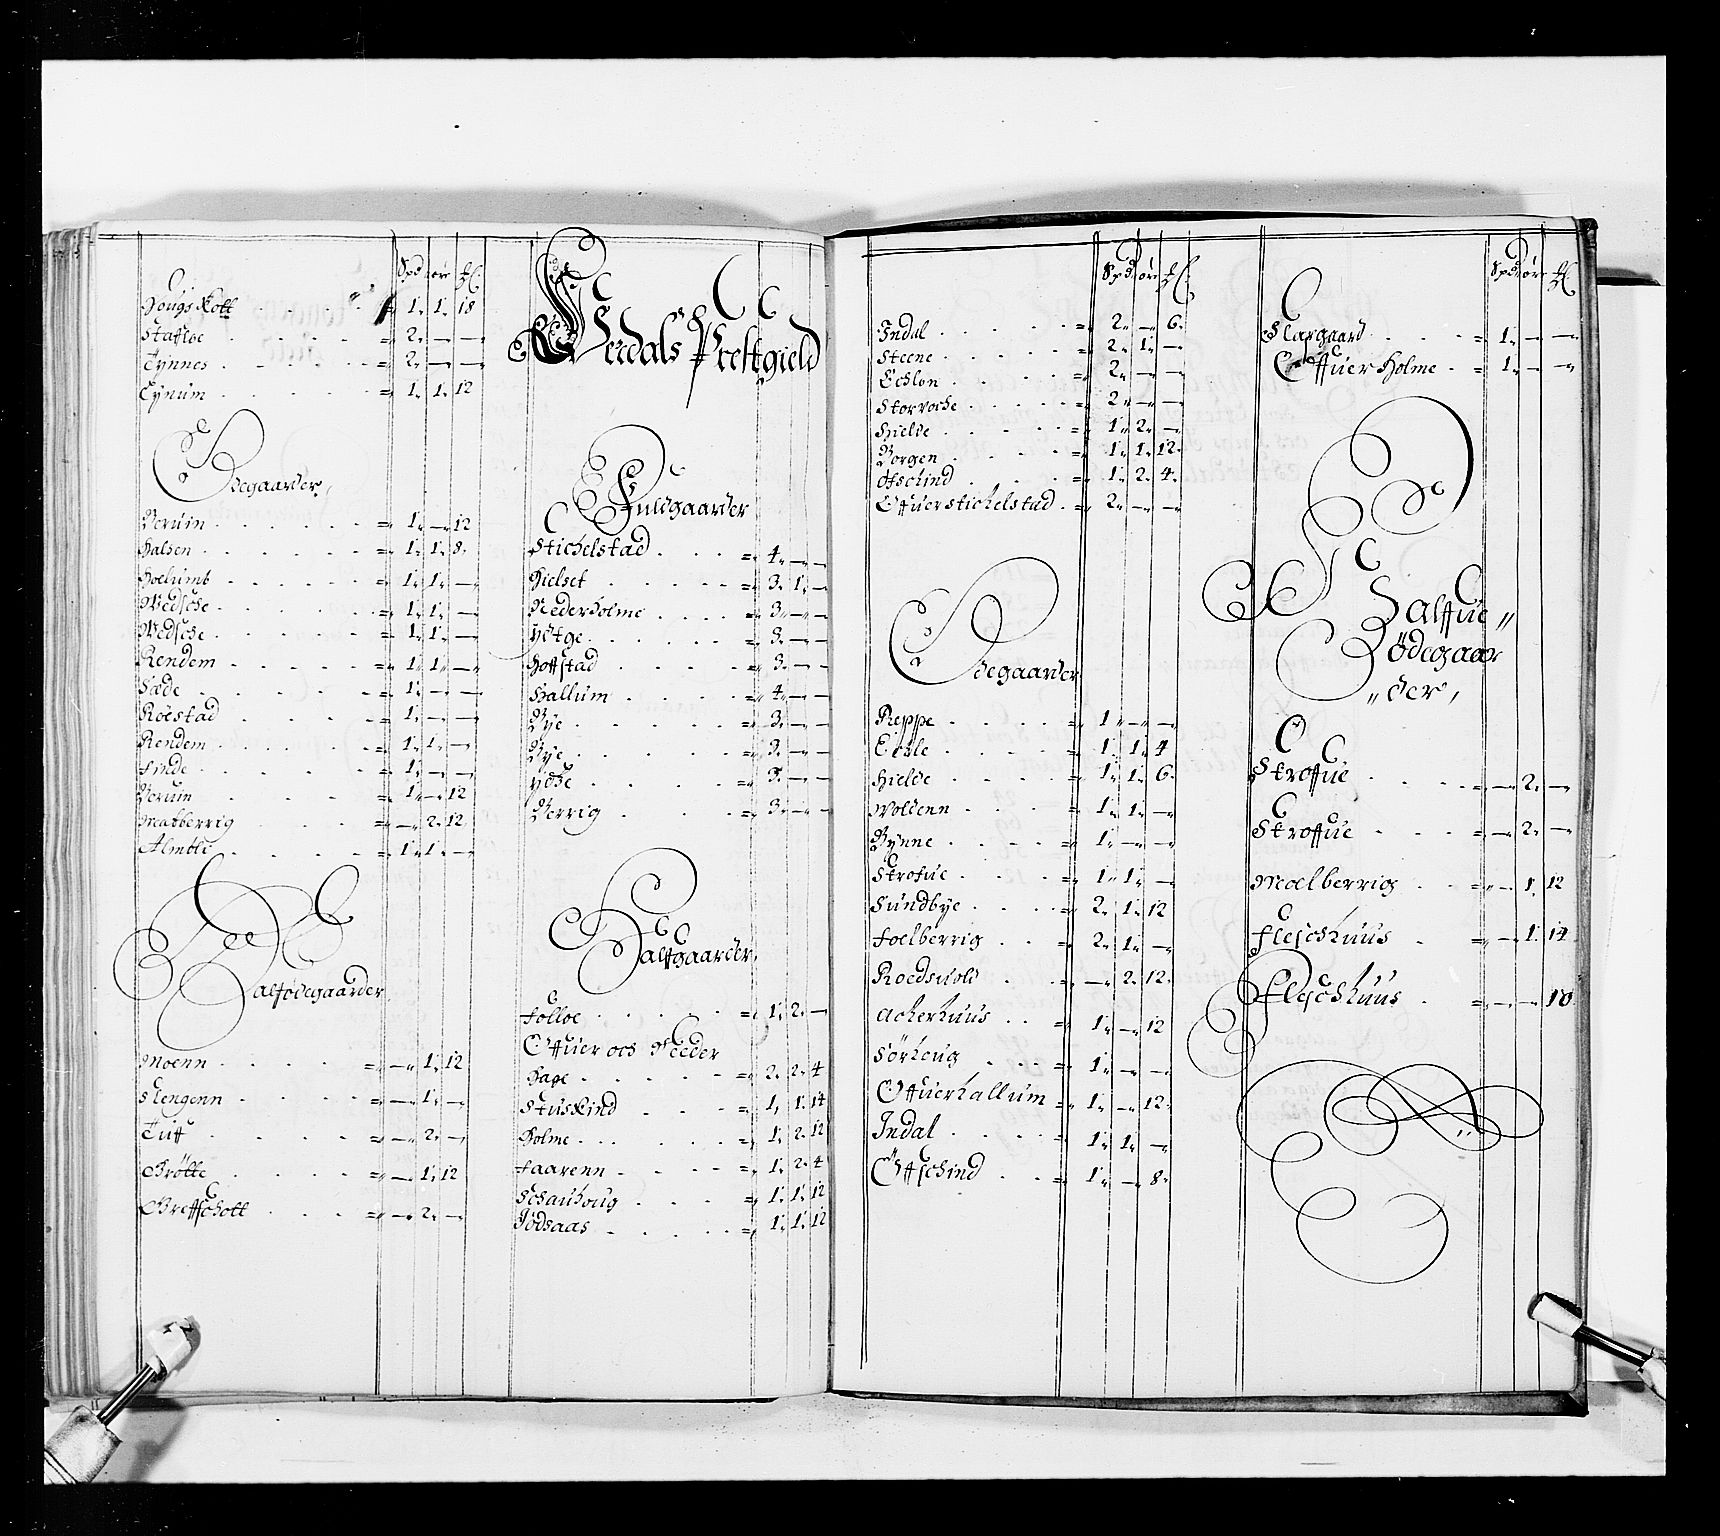 Spd ör
Hougskott . . . 1. 1. 18
Stafloe . . . = 2. — —
Tynnes . . . = 2. — —
Eynum . . . = 1. 1. 12
Ödegaarder,
Beruin . . . = 1. — 12
Halsen . . . = 1. 1. 8.
Hoelumb . . . = 1. 1. —
Wedsche . . . = 1. 1. —
Wedsche . . . = 1. 1. —
Rendem . . . = 1. 1. —
Sæde . . . = 1. — —
Röestad . . . = 1. — —
Rendem . . . = 1. 1. —
Finde . . . = 1. — —
Beruin . . . = 1. — 12
Matberrig . . . = — 2. 12
Almbli . . . = 1. 1. —
Halfödegaarder
Moenn . . . = — 1. 12
Slengenn . . . = — 1. —
Tuff . . . = — 2. —
Grötte . . . = — 1. 12
Greffschott . . . = — 2. —
Werdals Prestgield
Fuldgaarder
Stichelstad . . . = 4. — —
Hielset . . . = 3. 1. —
Nederholme . . . = 3. — —
Hötge . . . = 3. — —
Hoffstad . . . = 3. — —
Hallum . . . = 4. — —
Bye . . . = 3. — —
Bye . . . = 3. — —
Ydse . . . = 3. — —
Berrig . . . = 3. — —
Halfgaarder,
Folloe . . . = 1. 2. —
Offuer och Neder
Hage . . . = 2. 2. 4
Stuskind . . . = 1. 1. 14
Holme . . . = 1. 2. 12
Faarenn . . . = 1. 2. 4
Schauhoug . . . = 1. 1. 12
Jödsaas . . . = 1. 1. 12
Spd ör
Indal . . . = 2. — 6.
Steene . . . = 2. 1. —
Echlon . . . = 2. — —
Storvoche . . . = 2. — —
Hielde . . . = 1. 2. —
Borgen . . . = 1. 1. 12.
Öfschind . . . = 1. 2. 4.
Offuerstichelstad . = 2. — —
Ödegaarder
Reppe . . . = 1 — —
Eckle . . . = 1. 1. 4
Hielde . . . = 1. 1. 6.
Woldenn . . . = 1. 1. —
Bynne . . . = 1. — —
Skrofue . . . = 1. 1. —
Sundbye . . . = 2. 1. 12
Foelberrig . . = 2. 1. —
Roedsuold . . = — 2. 12.
Ackerhuus . . = 1. — 12
Sörhoug . . . = 1. — —
Offuerhallum = 1. — 12.
Indal . . . = 1. 1. —
Öffschind . . = 1. — 8.
Spd ör
Slapgaard . . . = 1. — —
Offuer Holme . = 1. — —
Halffue„
Ödegaar
„der,
Skroffue . . . = — 2. —
Skroffue . . . = — 2. —
Moelberrig . . = — 1. 12
Fleschhuus . = — 1. 14
Fleschhuus . = — — 18